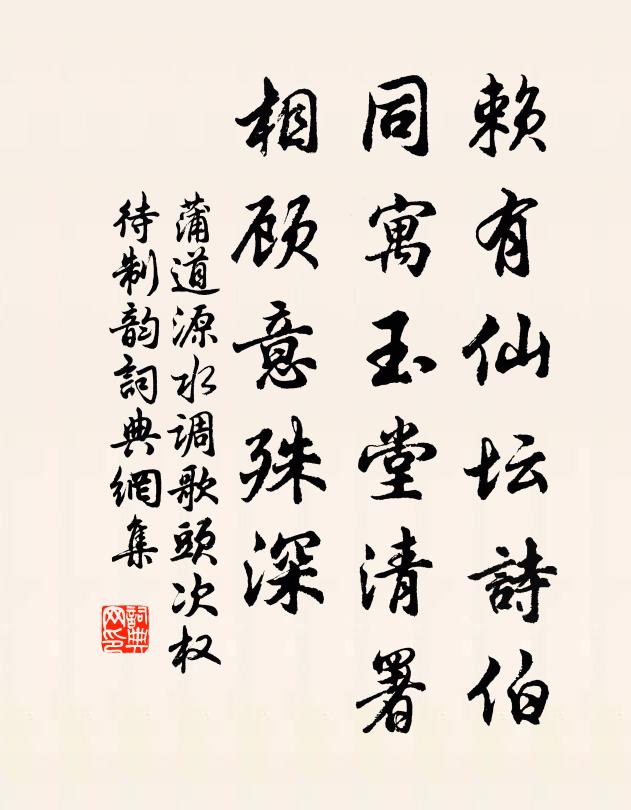 赖有仙坛詩伯
同寓玉堂清署
相顾意殊深
蒲道源水调歌頭次权
待制韵詞典網集
詞典网印